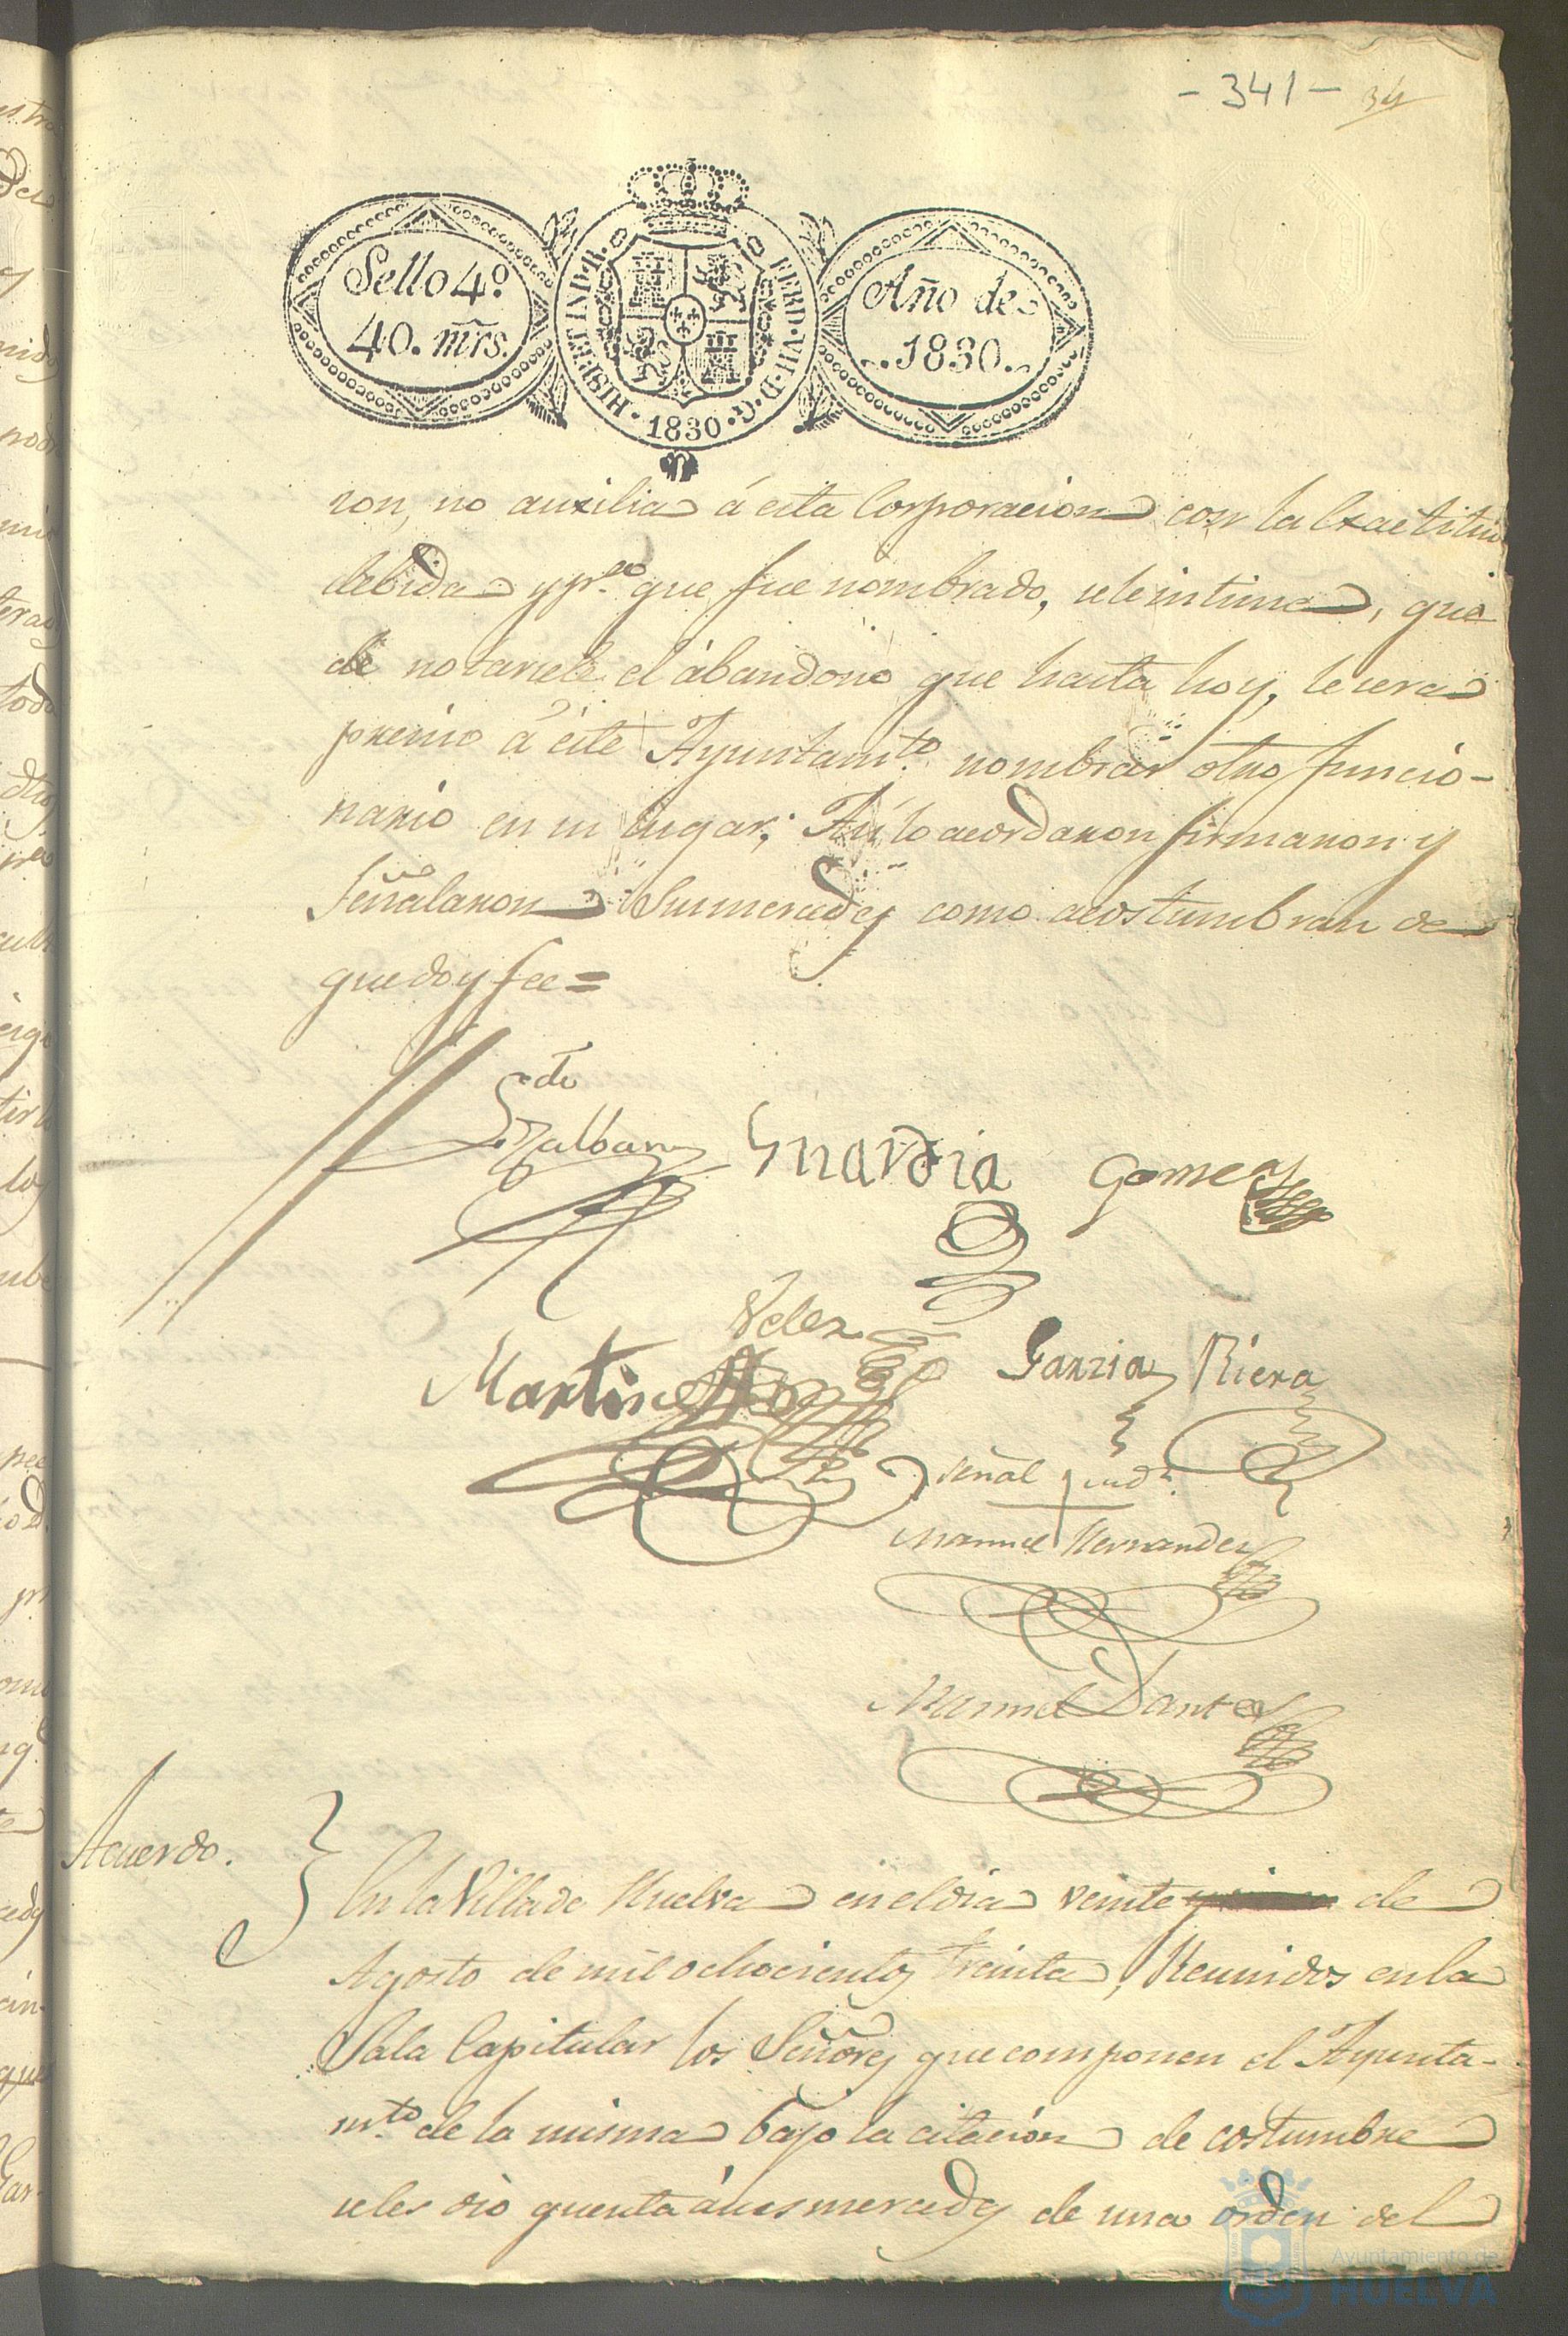 - 341 - 34
Sello 4º.
40. mrs.
HISP. ET IND. R. FERD. VII. D. G. 1830
Año de
1830
ron, no auxilia á esta Corporacion con la Exactitud
debida y pª. que fue nombrado, sele intima, que
de notarsele el ábandono que hasta hoy, le sera
presiso á este Ayuntamto. nombrar otro funcio-
nario en su lugar; Asi lo acordaron firmaron y
Señalaron Sus mercedes como acostumbran de
que doy fee =
Guardia Gomez
Velez
Martinez Garzia Riera
señal
Manuel Hernandez
Manuel Dantes
Acuerdo.
En la Villa de Huelva en el dia veinte de
Agosto de mil ochocientos treinta, Reunidos en la
Sala Capitular los Señores que componen el Ayunta-
mto. de la misma bajo la citacion de costumbre
seles dio quenta á sus mercedes de una orden del
Ayuntamiento de
HUELVA